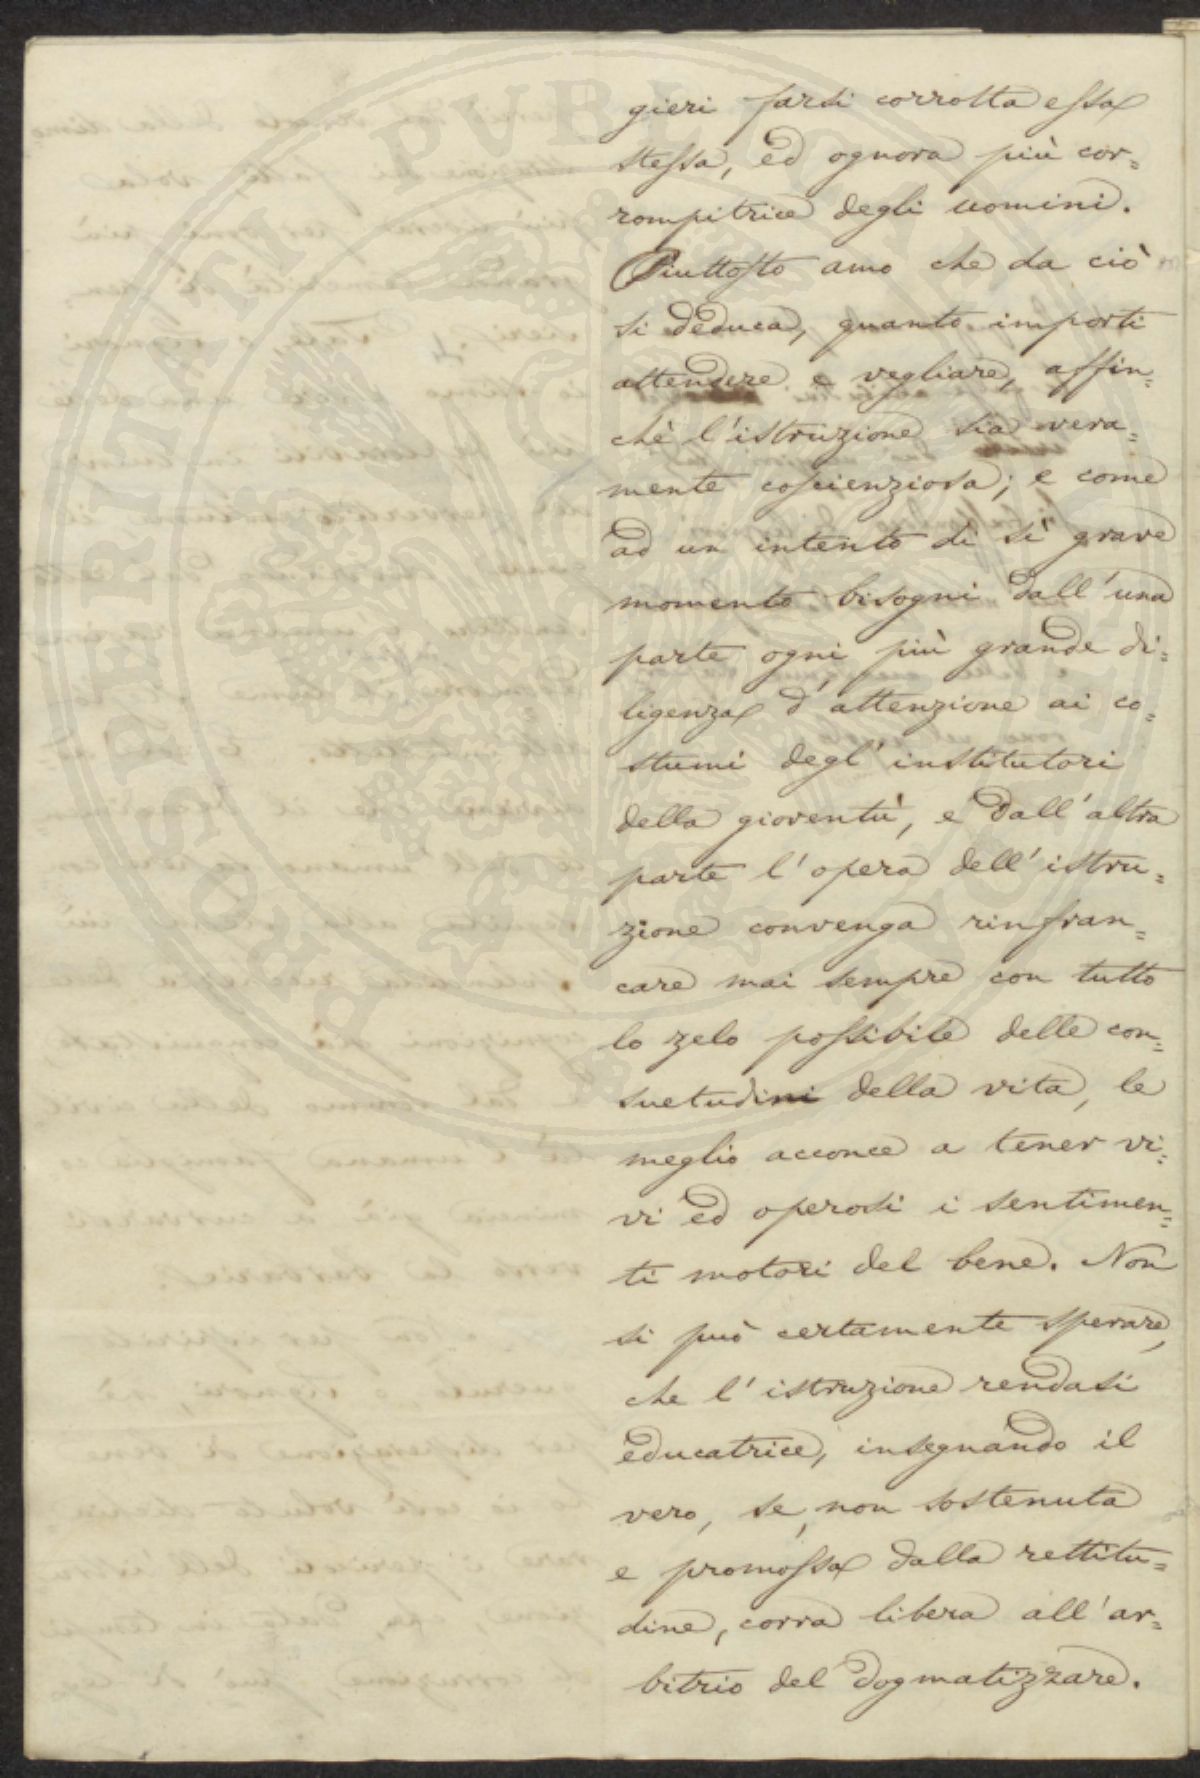 gieri farsi corrotta essa
stessa, ed ognora più cor=
rompitrice degli uomini.
Piuttosto amo che da ciò
si deduca, quanto importi
attendere e vegliare, affin=
chè l'istruzione sia vera=
mente coscienziosa; e come
ad un intento di sì grave
momento bisogni dall'una
parte ogni più grande di=
ligenza d'attenzione ai co=
stumi degl'institutori
della gioventù, e dall'altra
parte l'opera dell'istru=
zione convenga rinfran=
care mai sempre con tutto
lo zelo possibile delle con=
suetudini della vita, le
meglio acconce a tener vi=
vi ed operosi i sentimen=
ti motori del bene. Non
si può certamente sperare,
che l'istruzione rendasi
educatrice, insegnando il
vero, se, non sostenuta
e promossa dalla rettitu=
dine, corra libera all'ar=
bitrio del dogmatizzare.
PROSPERITATI PVBLICAE